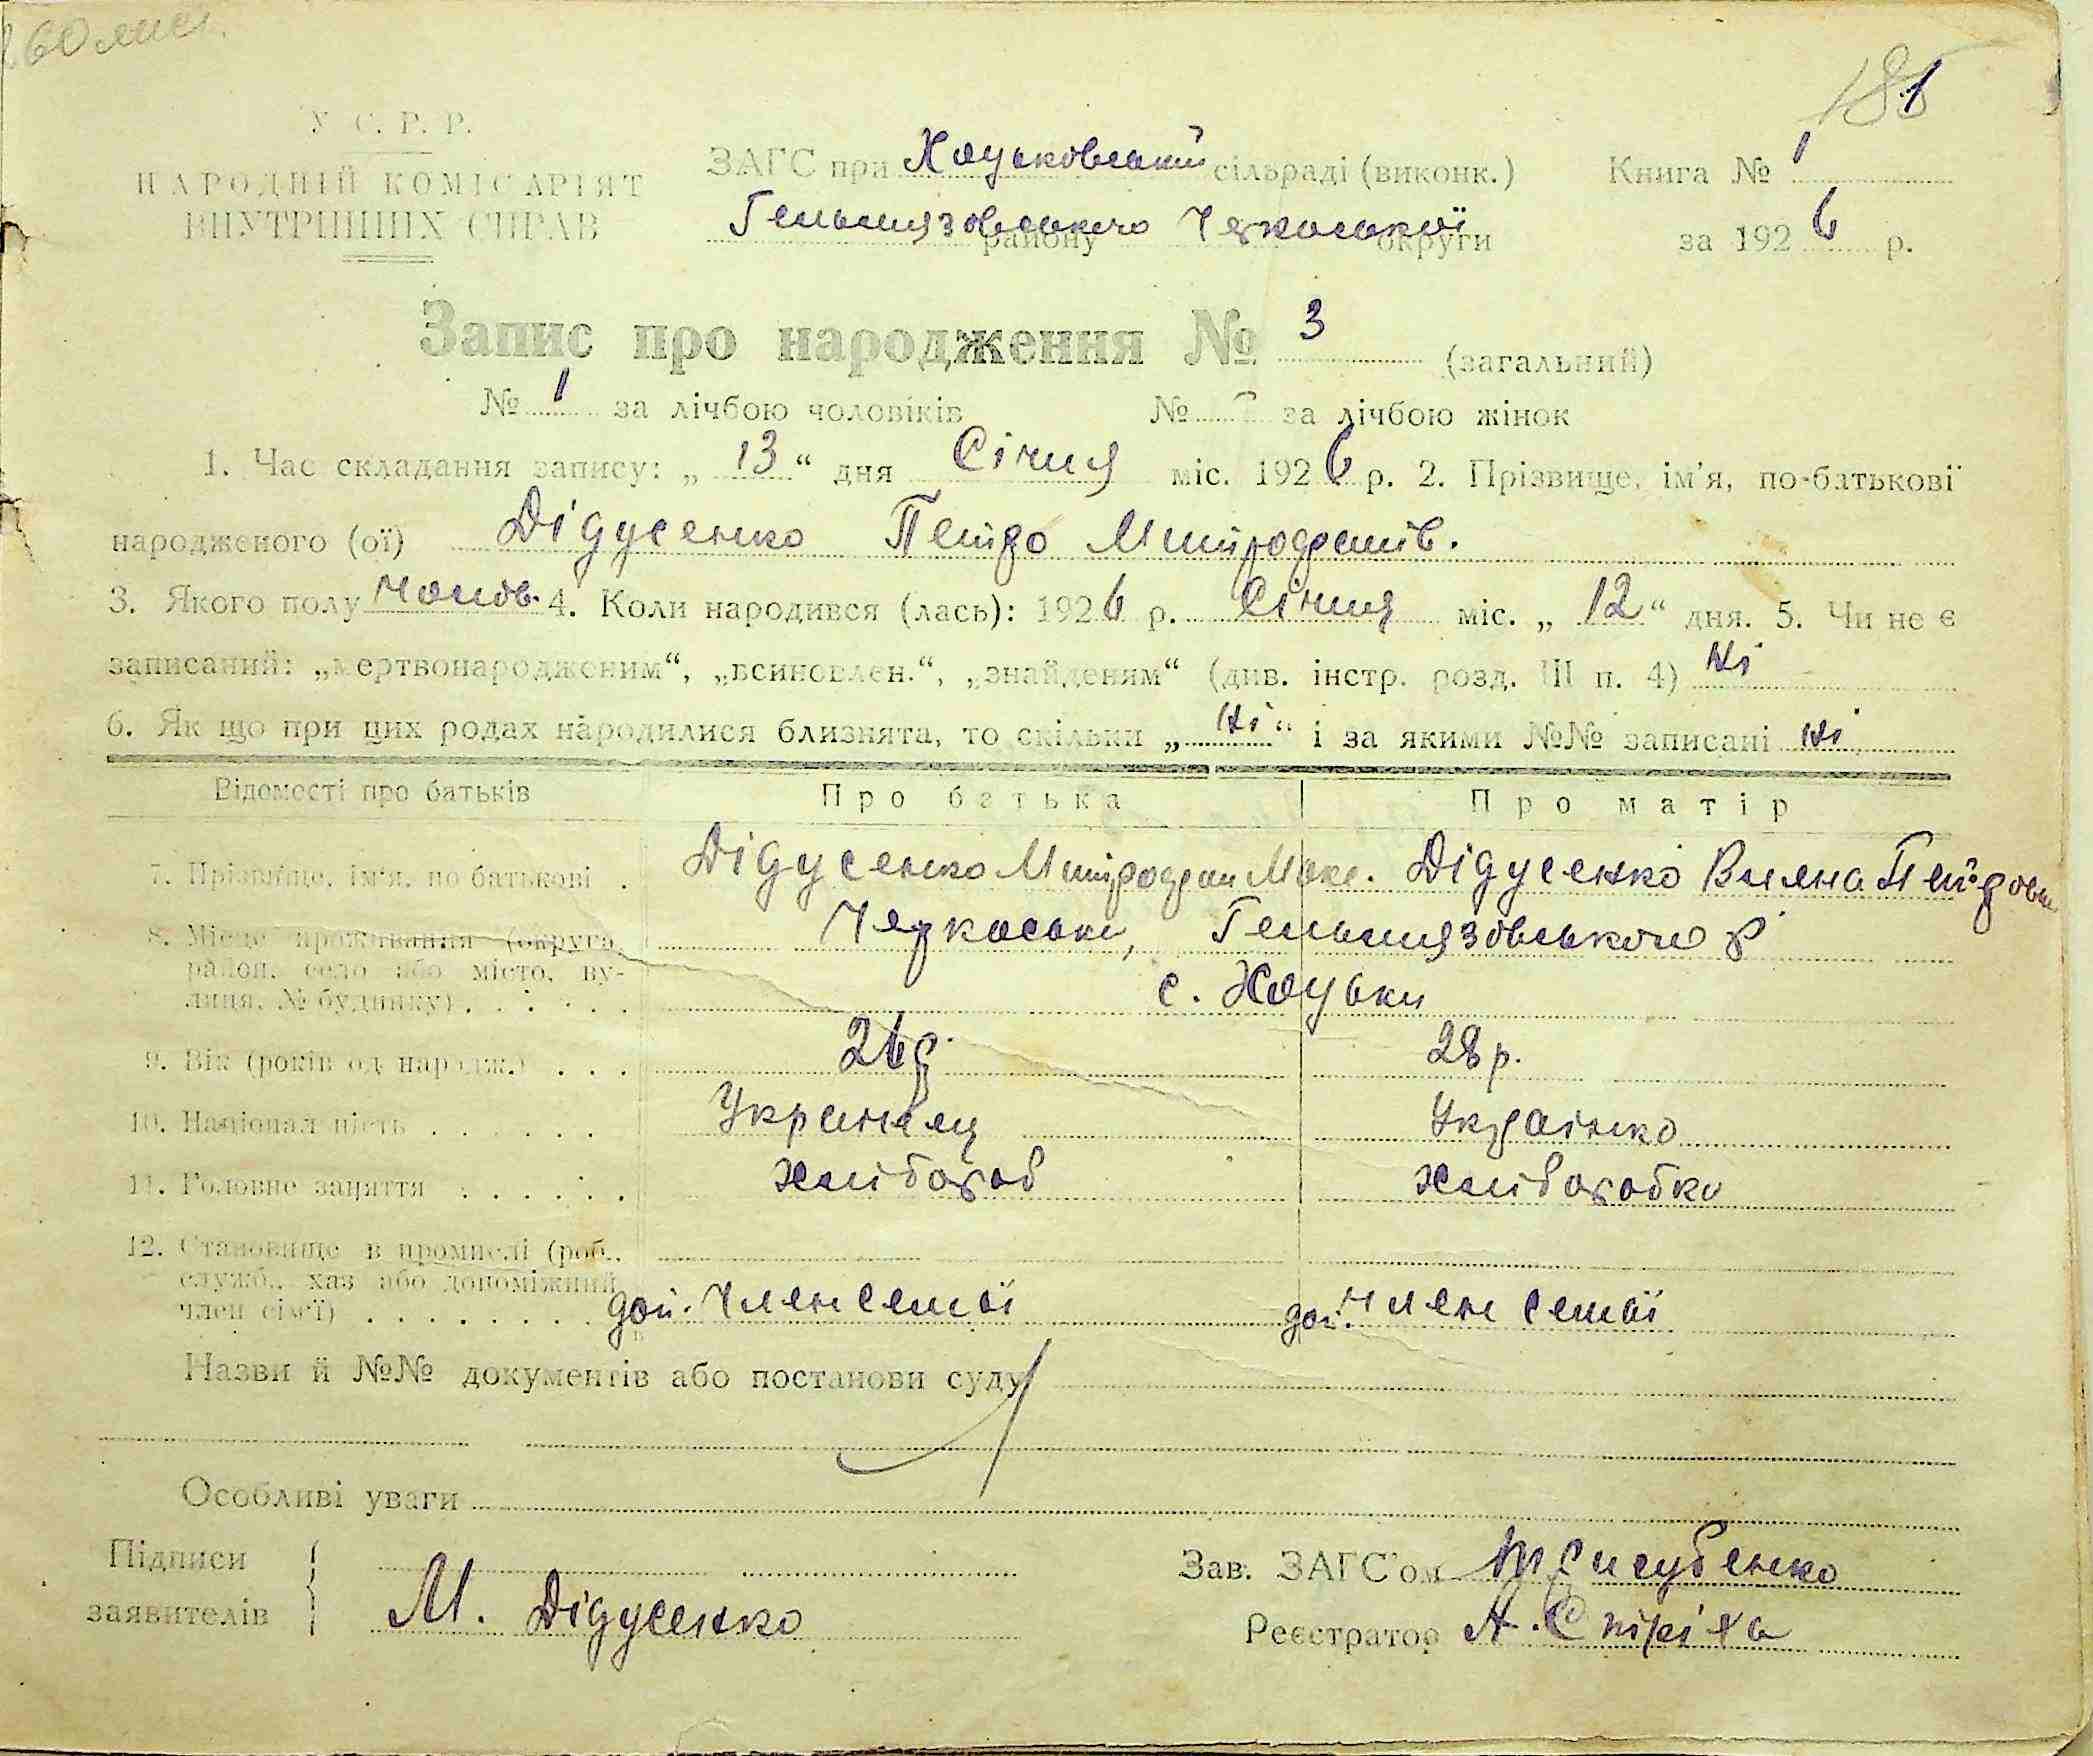 181
У. С. Р. Р.
НАРОДНІЙ КОМІСАРІЯТ
ВНУТРІШНІХ СПРАВ
ЗАГС при Хоцьковський сільраді (виконк.)
Гельмязовського району Черкаської округи
Книга № 1
за 1926 р.
Запис про народження № 3 (загальний)
№ 1 за лічбою чоловіків № - за лічбою жінок
1. Час складання запису: „13“ дня Січня міс. 1926 р. 2. Прізвище, ім'я, по-батькові
народженого (ої) Дідусенко Петро Митрофанів.
3. Якого полу чолов. 4. Коли народився (лась): 1926 р. Січня міс. „12“ дня. 5. Чи не є
записаний: „мертвонародженим“, „всиновлен.“, „знайденям“ (див. інстр. розд. III п. 4) Ні
6. Як що при цих родах народилися близнята, то скільки „Ні“ і за якими №№ записані Ні
Відомості про батьків Про батька Про матір
7. Прізвище, ім'я, по батькові . Дідусенко Митрофан Макс. Дідусенко
8. Місце проживання (округа, район, село або місто, вулиця, № будинку) . . . . . Черкаськи, Гельмязовського р
с. Хоцьки
9. Вік (років од народж.) . . . 26 р. 28 р.
10. Національність . . . . . . Українец Українка
11. Головне заняття . . . . . . хлібороб хліборобка
12. Становище в промислі (роб., служб., хаз або допоміжний член сім'ї) . . . . . . . . доп. член семьї доп. член семьї
Назви й №№ документів або постанови суду
Особливі уваги
Підписи
заявителів
М. Дідусенко
Зав. ЗАГС'ом
Реєстратор